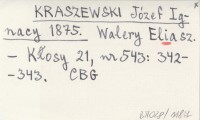 KRASZEWSKI Józef Ig-
nacy 1875. Walery Eliasz.
- Kłosy 21, nr 543: 342-
-343. CBG